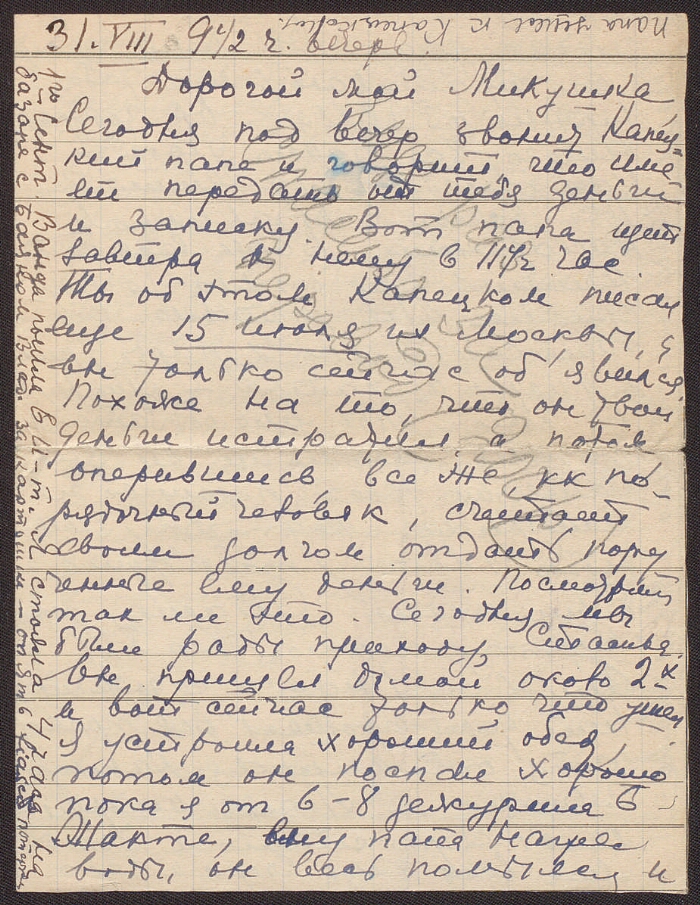 31. VIII 9 1/2 ч.
Дорогой мой Микушка
Сегодня под вечер звонит Капец-
кий папе и говорит, что име
ет передать от тебя деньги
и записку. Вот папа идет
завтра к нему в 11 1/2 час.
Ты об этом Капецком писал
еще 15 июля из Москвы, а
он только сейчас об'явился.
Похоже на то, что он твои
деньги истратил, а потом
оперившись, все же, кк по-
рядочный человек, считает
своим долгом отдать пору
ченные ему деньги. Посмотрим
так ли это. Сегодня мы
были рады приходу Стасика.
Он пришел домой около 2х
и вот сейчас только что ушел
я устроила хороший обед,
потом он поспал хорошо
пока я от 6-8 дежурила в
Жакте, ему папа нагрел
воды, он весь помылся и
1го Сент Ванда пошла в И-т. Я стояла 4 часа на
базаре с
папа к Капецкому.